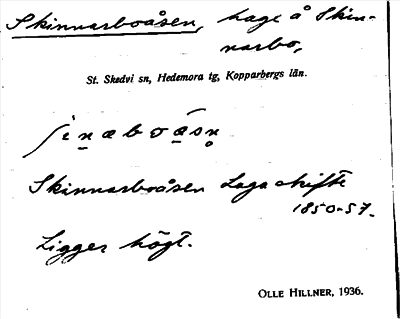 Skinnarboåsen, hage å Skin-
narbo,
St. Skedvi sn, Hedemora tg, Kopparbergs län.
Skinnarboåsen Laga skifte
1850-57.
Ligger högt.
OLLE HILLNER, 1936.